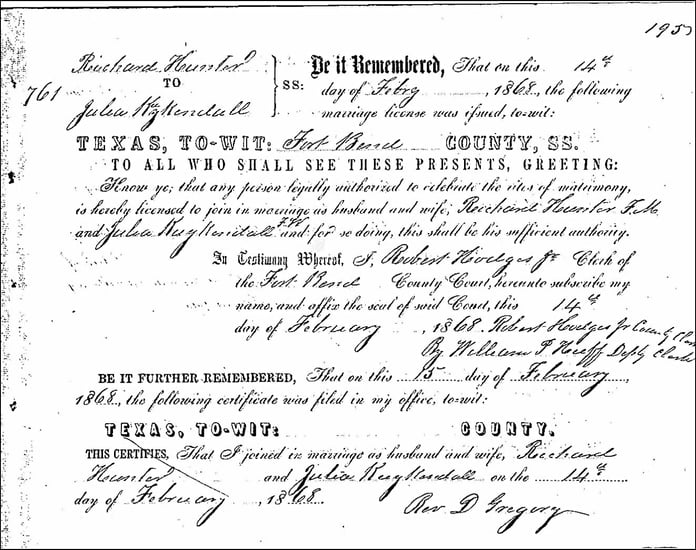 195
Richard Hunter
TO
Julia Kuykendall
761
SS:
Be it Remembered, That on this 14th
day of Feb'ry, 1868, the following
marriage license was issued, to-wit:
TEXAS, TO-WIT: Fort Bend COUNTY, SS.
TO ALL WHO SHALL SEE THESE PRESENTS, GREETING:
Know ye; that any person legally authorized to celebrate the rites of matrimony,
is hereby licensed to join in marriage as husband and wife, Reichard Hunter F.M.
and Julia Kuykendall F.W. and for so doing, this shall be his sufficient authority.
In Testimony Whereof, I, Robert Hodges Jr Clerk of
the Fort Bend County Court, hereunto subscribe my
name, and affix the seal of said Court, this 14th
day of February, 1868. Robert Hodges Jr County Clerk
By William P. Huff Depty Clerk
BE IT FURTHER REMEMBERED, That on this 15 day of February
1868, the following certificate was filed in my office, to-wit:
TEXAS, TO-WIT: COUNTY.
THIS CERTIFIES, That I joined in marriage as husband and wife, Reichard
Hunter and Julia Kuykendall on the 14th
day of February, 1868.
Rev. D Gregory